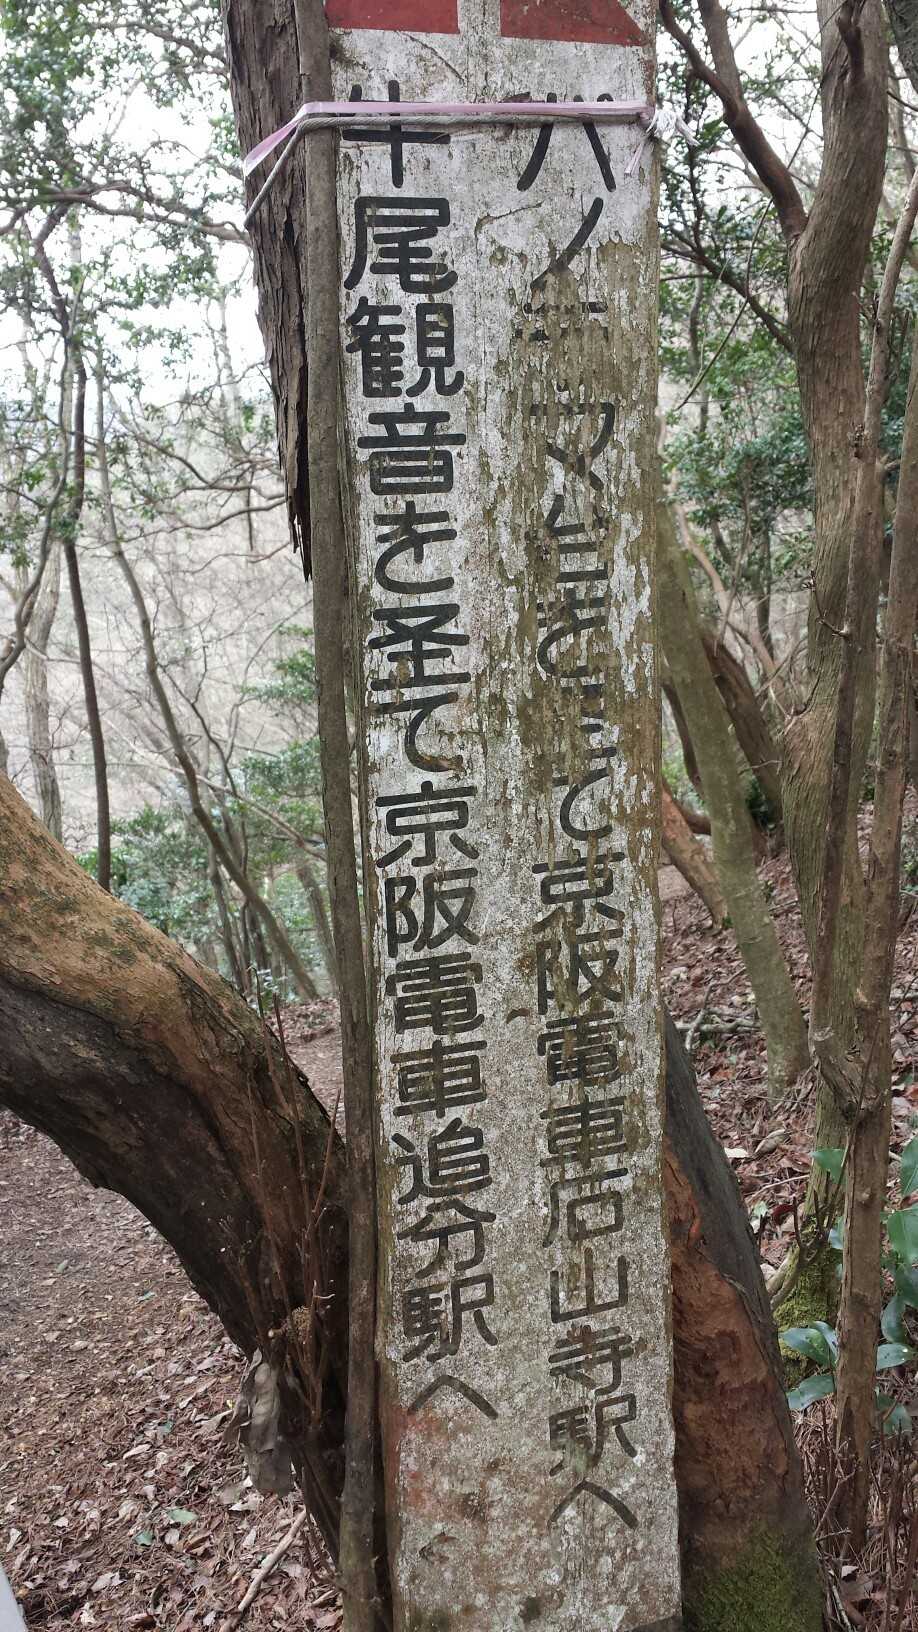 パノラマ台をて京阪電車石山寺駅へ
牛尾観音を圣て京阪電車追分駅へ